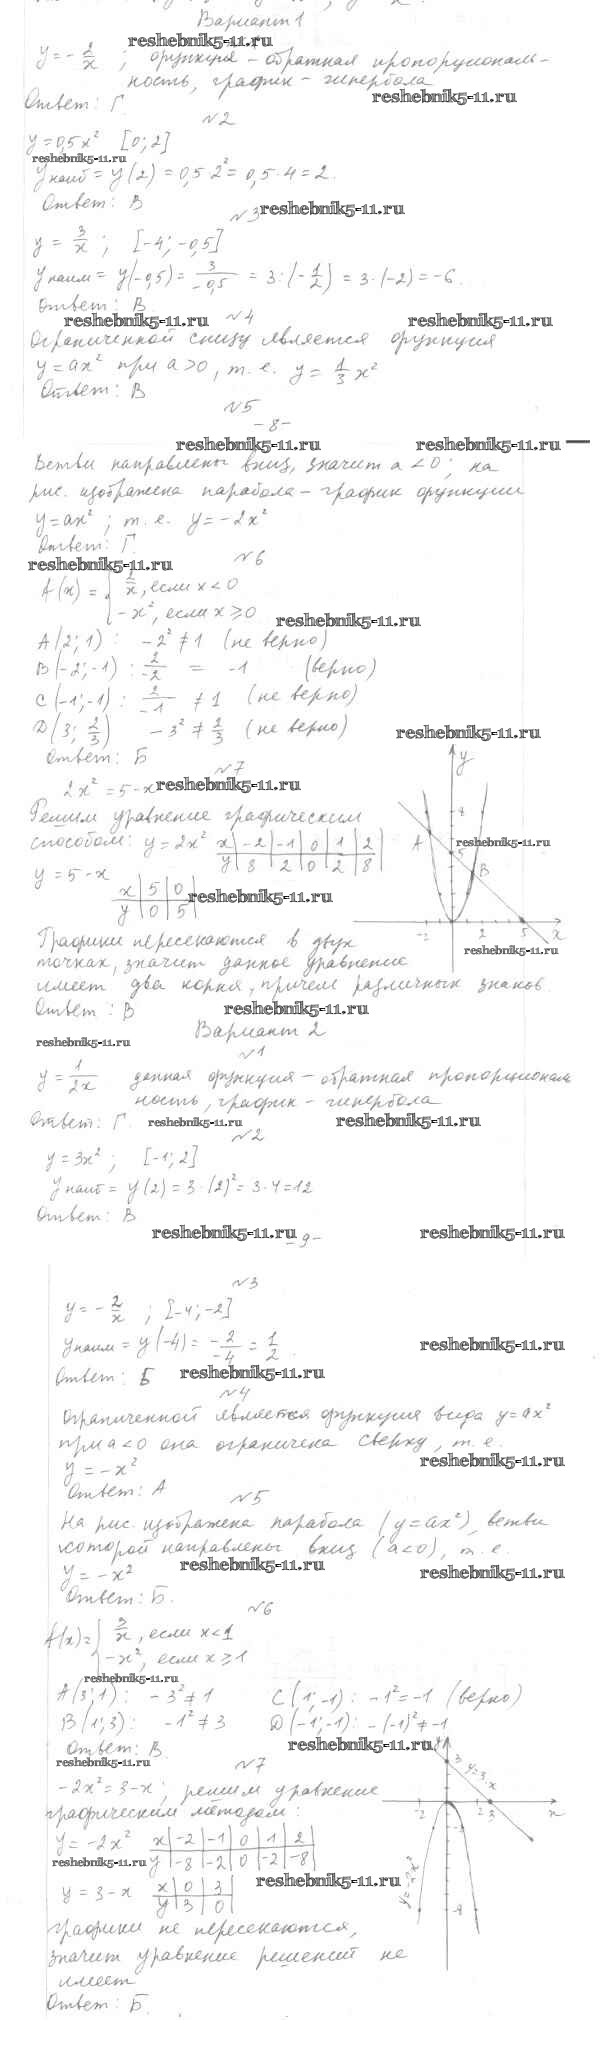 Вариант 1
reshebnik5-11.ru
y = - 2/x ; функция - обратная пропорциональ-
ность, график - гипербола
Ответ: Г. reshebnik5-11.ru
№2
y = 0,5x² [0; 2]
reshebnik5-11.ru
yнаиб = y(2) = 0,5·2² = 0,5·4 = 2.
Ответ: В
№3 reshebnik5-11.ru
y = 3/x ; [-4; -0,5]
yнаим = y(-0,5) = 3/-0,5 = 3:(-1/2) = 3·(-2) = -6.
Ответ: В
reshebnik5-11.ru №4 reshebnik5-11.ru
Ограниченной снизу является функция
y = ax² при a>0, т.е. y = 1/3 x²
Ответ: В
№5
-8-
reshebnik5-11.ru reshebnik5-11.ru
Ветви направлены вниз, значит a<0; на
рис. изображена парабола - график функции
y = ax²; т.е. y = -2x²
Ответ: Г.
reshebnik5-11.ru №6
A(x) = { 2/x, если x<0
-x², если x≥0
reshebnik5-11.ru
A(2; 1) : -2² ≠ 1 (не верно)
B(-2; -1) : 2/-2 = -1 (верно)
C(-1; -1) : 2/-1 ≠ 1 (не верно)
D(3; 2/3) -3² ≠ 2/3 (не верно)
reshebnik5-11.ru
Ответ: Б
№7
2x² = 5-x reshebnik5-11.ru
Решим уравнение графическим
способом: y = 2x² x | -2 | -1 | 0 | 1 | 2
y | 8 | 2 | 0 | 2 | 8
y = 5-x
x | 5 | 0
y | 0 | 5
reshebnik5-11.ru
y
8
A
reshebnik5-11.ru
5
B
-2 2 5 x
reshebnik5-11.ru
Графики пересекаются в двух
точках, значит данное уравнение
имеет два корня, причем различных знаков.
Ответ: В reshebnik5-11.ru
Вариант 2
reshebnik5-11.ru
№1
y = 1/2x данная функция - обратная пропорциональ
ность, график - гипербола
Ответ: Г. reshebnik5-11.ru reshebnik5-11.ru
№2
y = 3x²; [-1; 2]
yнаиб = y(2) = 3·(2)² = 3·4 = 12
Ответ: В
reshebnik5-11.ru -9- reshebnik5-11.ru
№3
y = - 2/x ; [-4; -2]
yнаим = y(-4) = - 2/-4 = 1/2.
reshebnik5-11.ru
Ответ: Б reshebnik5-11.ru
№4
Ограниченной является функция вида y = ax²
при a<0 она ограничена сверху, т.е.
y = -x² reshebnik5-11.ru
Ответ: А
№5
На рис. изображена парабола (y=ax²), ветви
которой направлены вниз (a<0), т.е.
reshebnik5-11.ru reshebnik5-11.ru
y = -x²
Ответ: Б.
№6
A(x) = { 3/x, если x<1
-x², если x≥1
reshebnik5-11.ru
A(3; 1) : -3² ≠ 1 C(1; -1) : -1² = -1 (верно)
B(1; 3) : -1² ≠ 3 D(-1; -1) : -(-1)² ≠ -1
Ответ: В. reshebnik5-11.ru
reshebnik5-11.ru №7
-2x² = 3-x; решим уравнение
графическим методом:
y = -2x² x | -2 | -1 | 0 | 1 | 2
y | -8 | -2 | 0 | -2 | -8
reshebnik5-11.ru
y = 3-x x | 0 | 3
y | 3 | 0
reshebnik5-11.ru
3 y=3-x
-2 2 3 x
y=-2x²
-8
графики не пересекаются,
значит уравнение решений не
имеет
Ответ: Б.